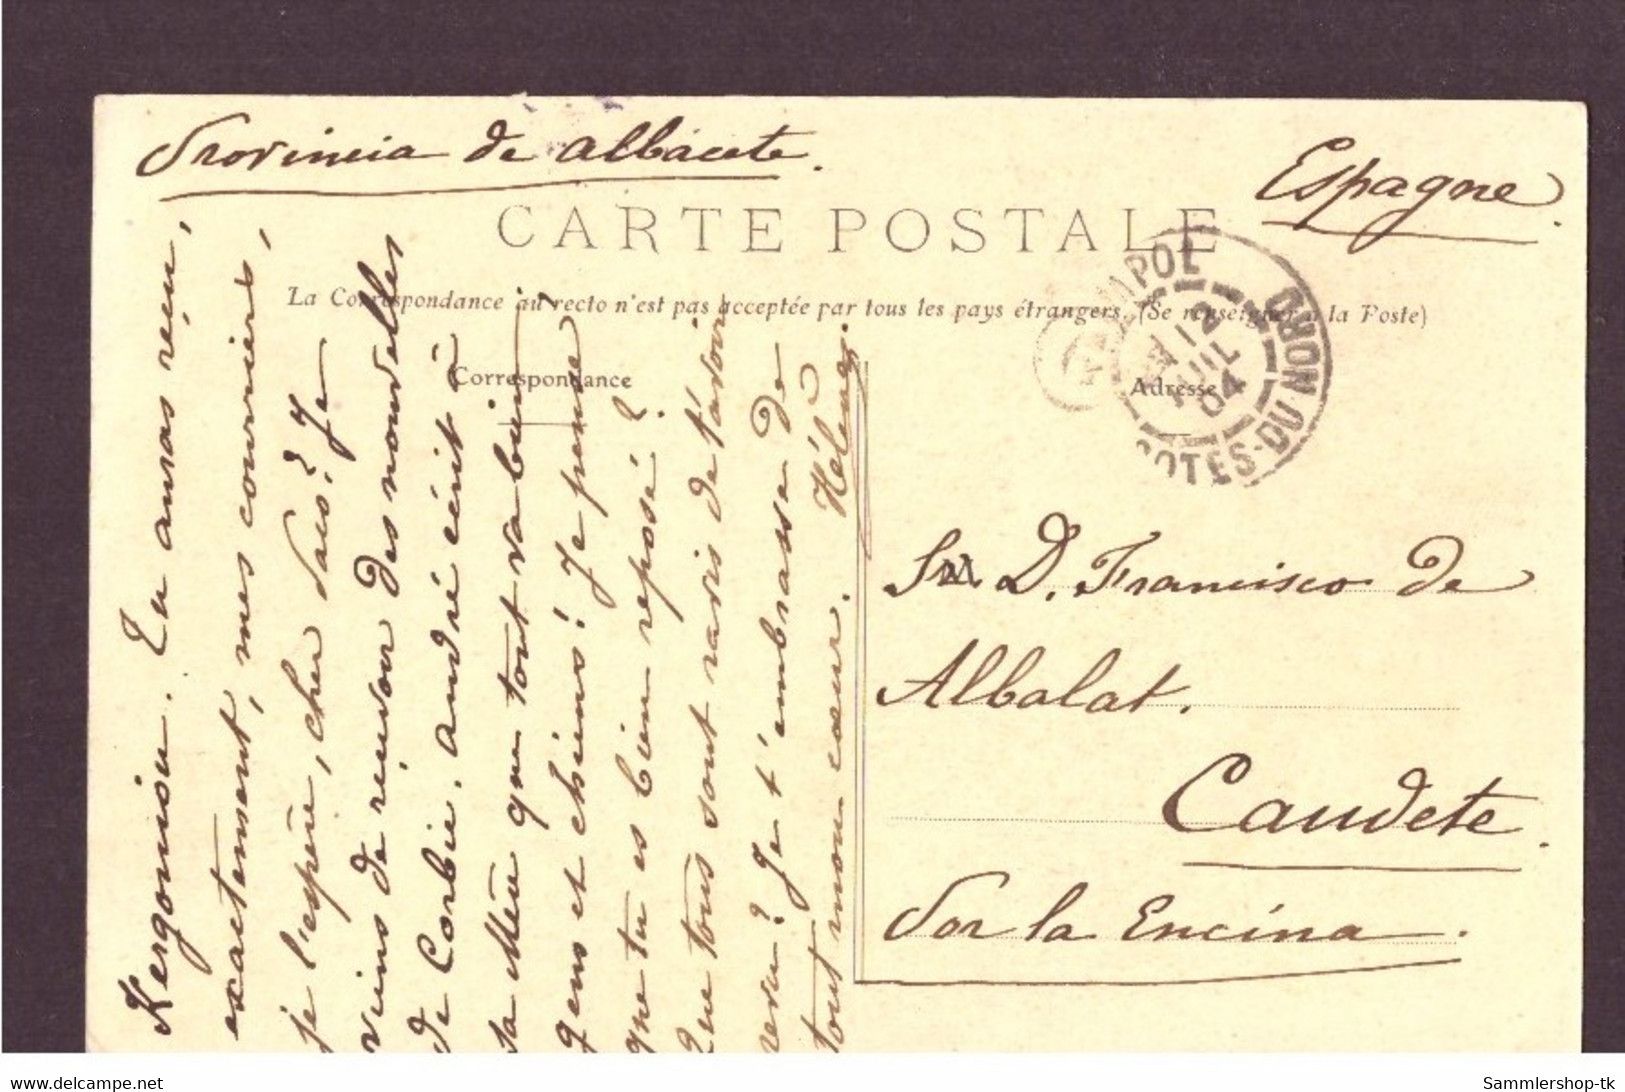 Provincia de Albacete.
Espagne.
CARTE POSTALE
La Correspondance au recto n'est pas acceptée par tous les pays étrangers. (Se renseigner à la Poste)
Correspondance
Adresse
PAIMPOL
12
JUIL
04
COTES-DU-NORD
Sr. D. Francisco de
Albalat.
Caudete.
Por la Encina.
Kergonsion. Tu auras reçu,
exactement, mes courriers,
je l'espère, cher Paco? Je
viens de recevoir des nouvelles
de Corbie. André écrit à
sa Mère que tout va bien,
gens et chiens! Je pense
que tu es bien reposé?
Que tous sont ravis de t'avoir
revu? Je t'embrasse de
tout mon cœur. Hélène
www.delcampe.net
Sammlershop-tk